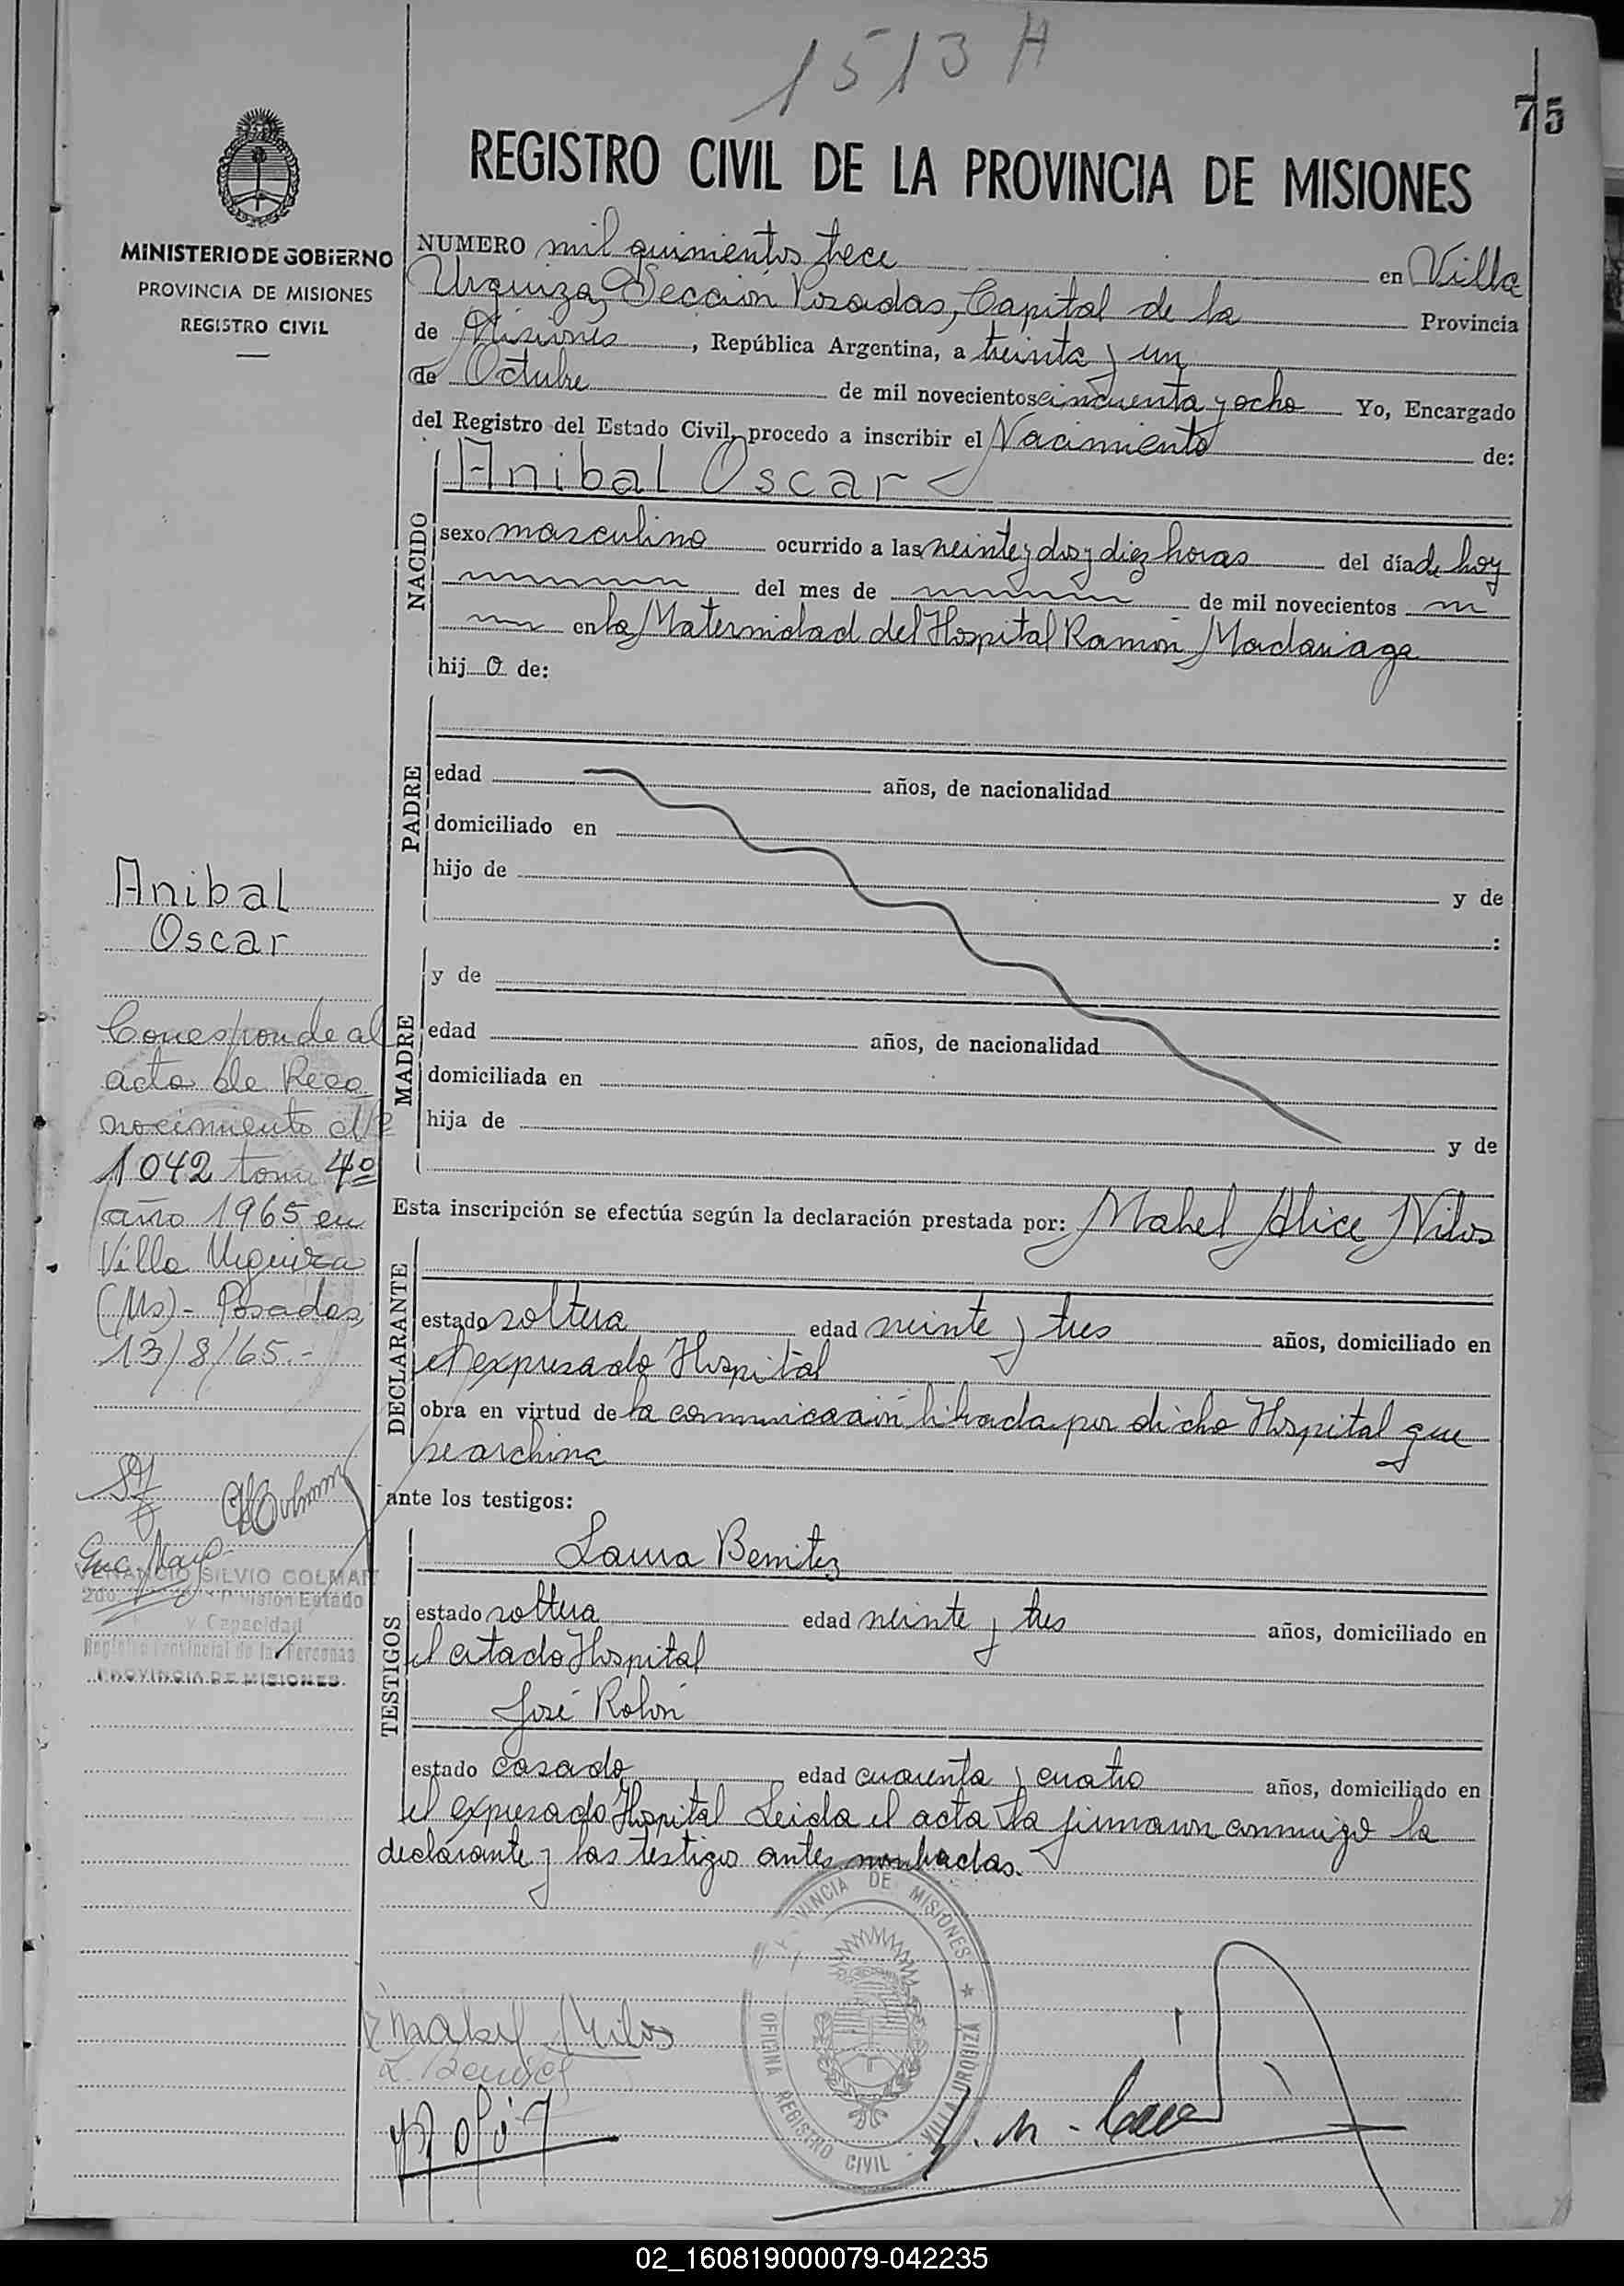 1513 H
75
REGISTRO CIVIL DE LA PROVINCIA DE MISIONES
MINISTERIO DE GOBIERNO
PROVINCIA DE MISIONES
REGISTRO CIVIL
NUMERO mil quinientos trece en Villa
Urquiza, Sección Posadas, Capital de la Provincia
de Misiones, República Argentina, a treinta y un
de Octubre de mil novecientos cincuenta y ocho Yo, Encargado
del Registro del Estado Civil, procedo a inscribir el Nacimiento de:
NACIDO
Anibal Oscar
sexo masculino ocurrido a las veinte y dos y diez horas del día de hoy
del mes de de mil novecientos
en la Maternidad del Hospital Ramón Madariaga
hij o de:
PADRE
edad años, de nacionalidad
domiciliado en
hijo de y de
:
MADRE
y de
edad años, de nacionalidad
domiciliada en
hija de y de
Anibal
Oscar
Corresponde al
acta de Reco
nocimiento Nº
1042 tomo 4º
año 1965 en
Villa Urquiza
(Ms)- Posadas,
13/8/65.-
VENANCIO SILVIO COLMAN
2do. División Estado
y Capacidad
Registro Provincial de las Personas
PROVINCIA DE MISIONES
Esta inscripción se efectúa según la declaración prestada por: Mabel Alice Nilos
DECLARANTE
estado soltera edad veinte y tres años, domiciliado en
el expresado Hospital
obra en virtud de la comunicación librada por dicho Hospital que
se archiva
ante los testigos:
TESTIGOS
Laura Benitez
estado soltera edad veinte y tres años, domiciliado en
el citado Hospital
José Rolón
estado casado edad cuarenta y cuatro años, domiciliado en
el expresado Hospital Leida el acta la firmaron conmigo la
declarante y los testigos antes nombrados.
Mabel Nilos
L. Benitez
Rolón
PROVINCIA DE MISIONES
OFICINA REGISTRO CIVIL - VILLA URQUIZA
02_160819000079-042235